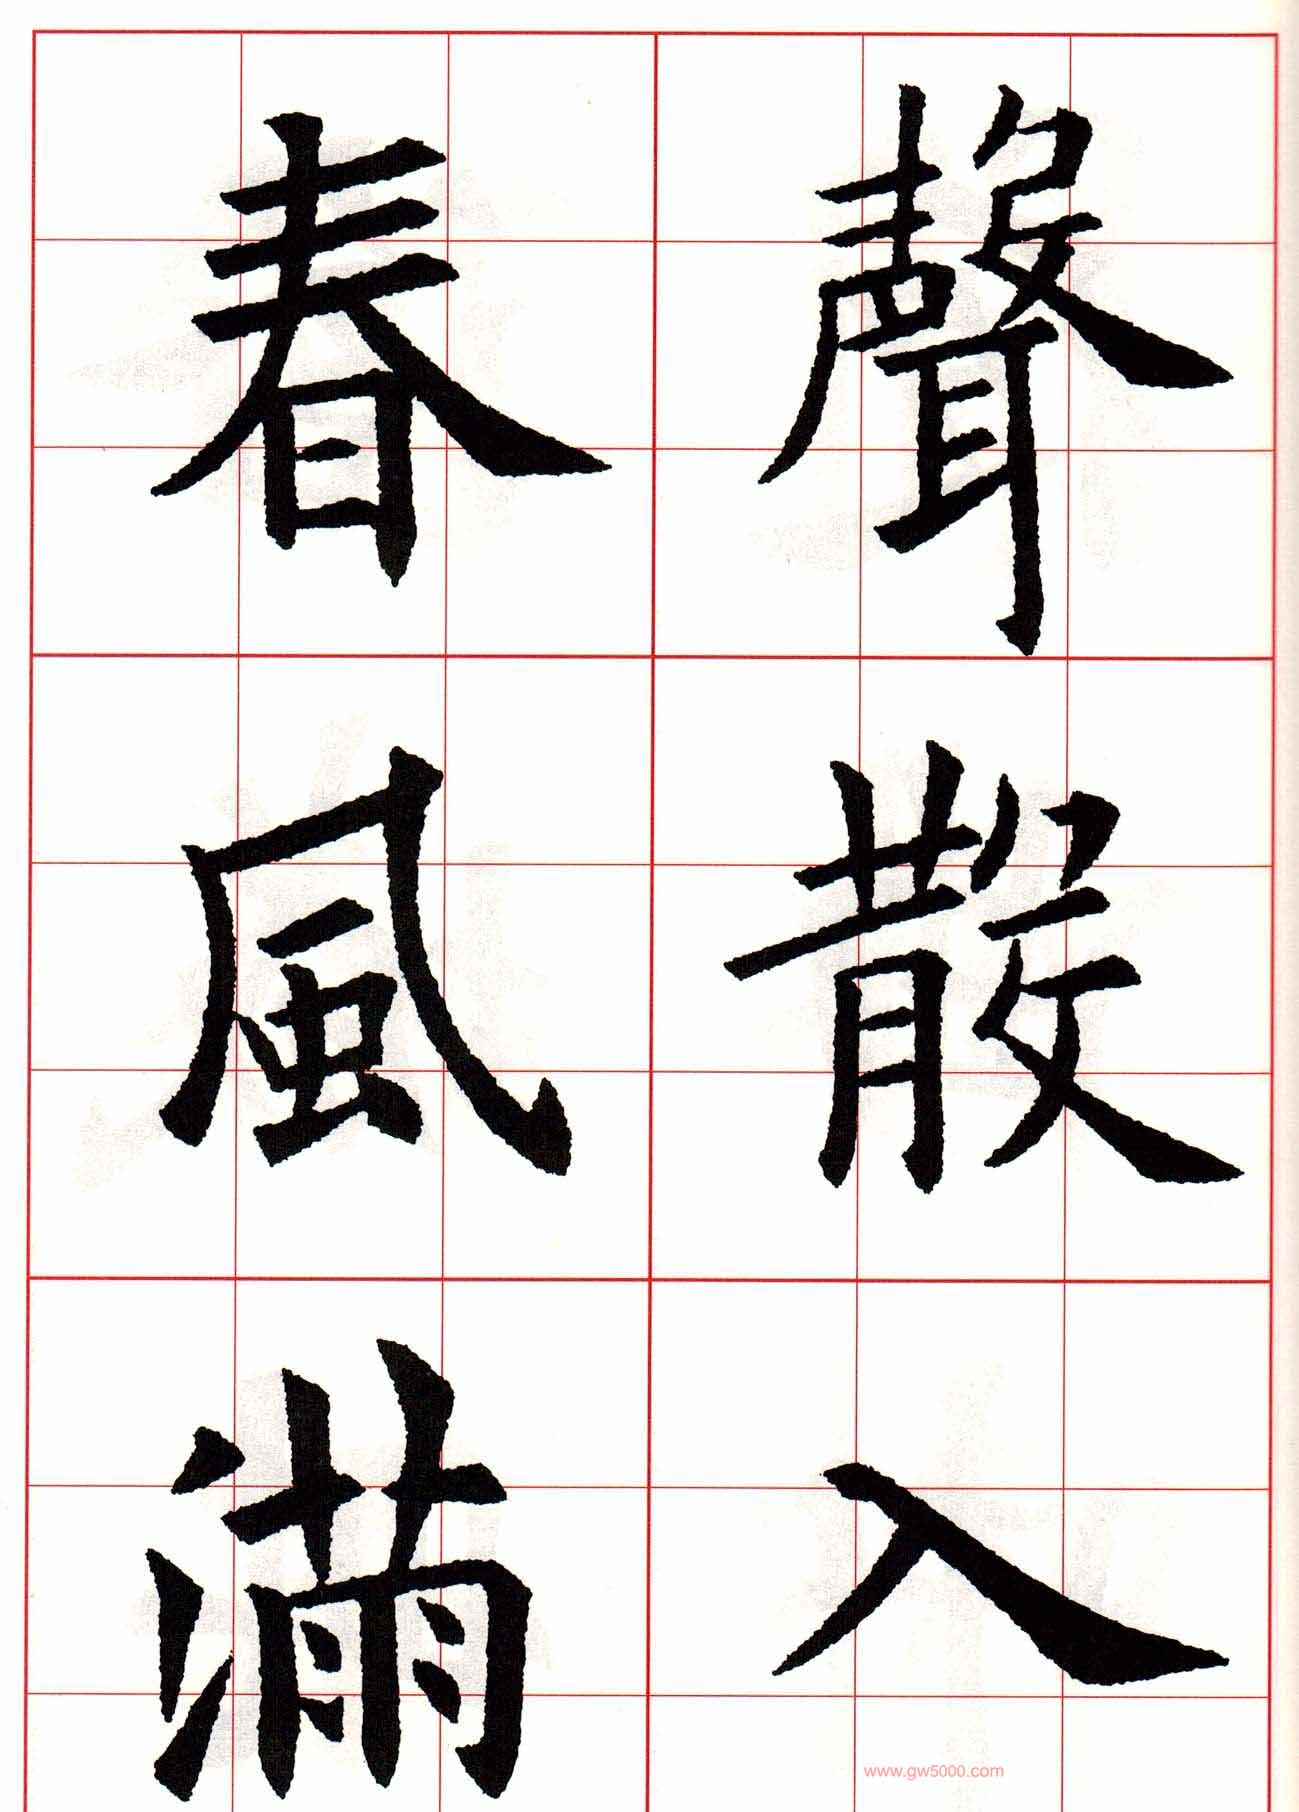 聲散入
春風滿
www.gw5000.com